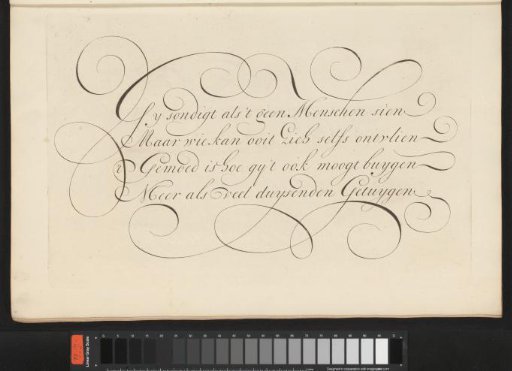 Gy sondigt als 't geen Menschen sien
Maar wie kan ooit Zich selfs ontvlien
't Gemoed is hoe gy 't ook moogt buygen
Meer als veel duysenden Getuygen